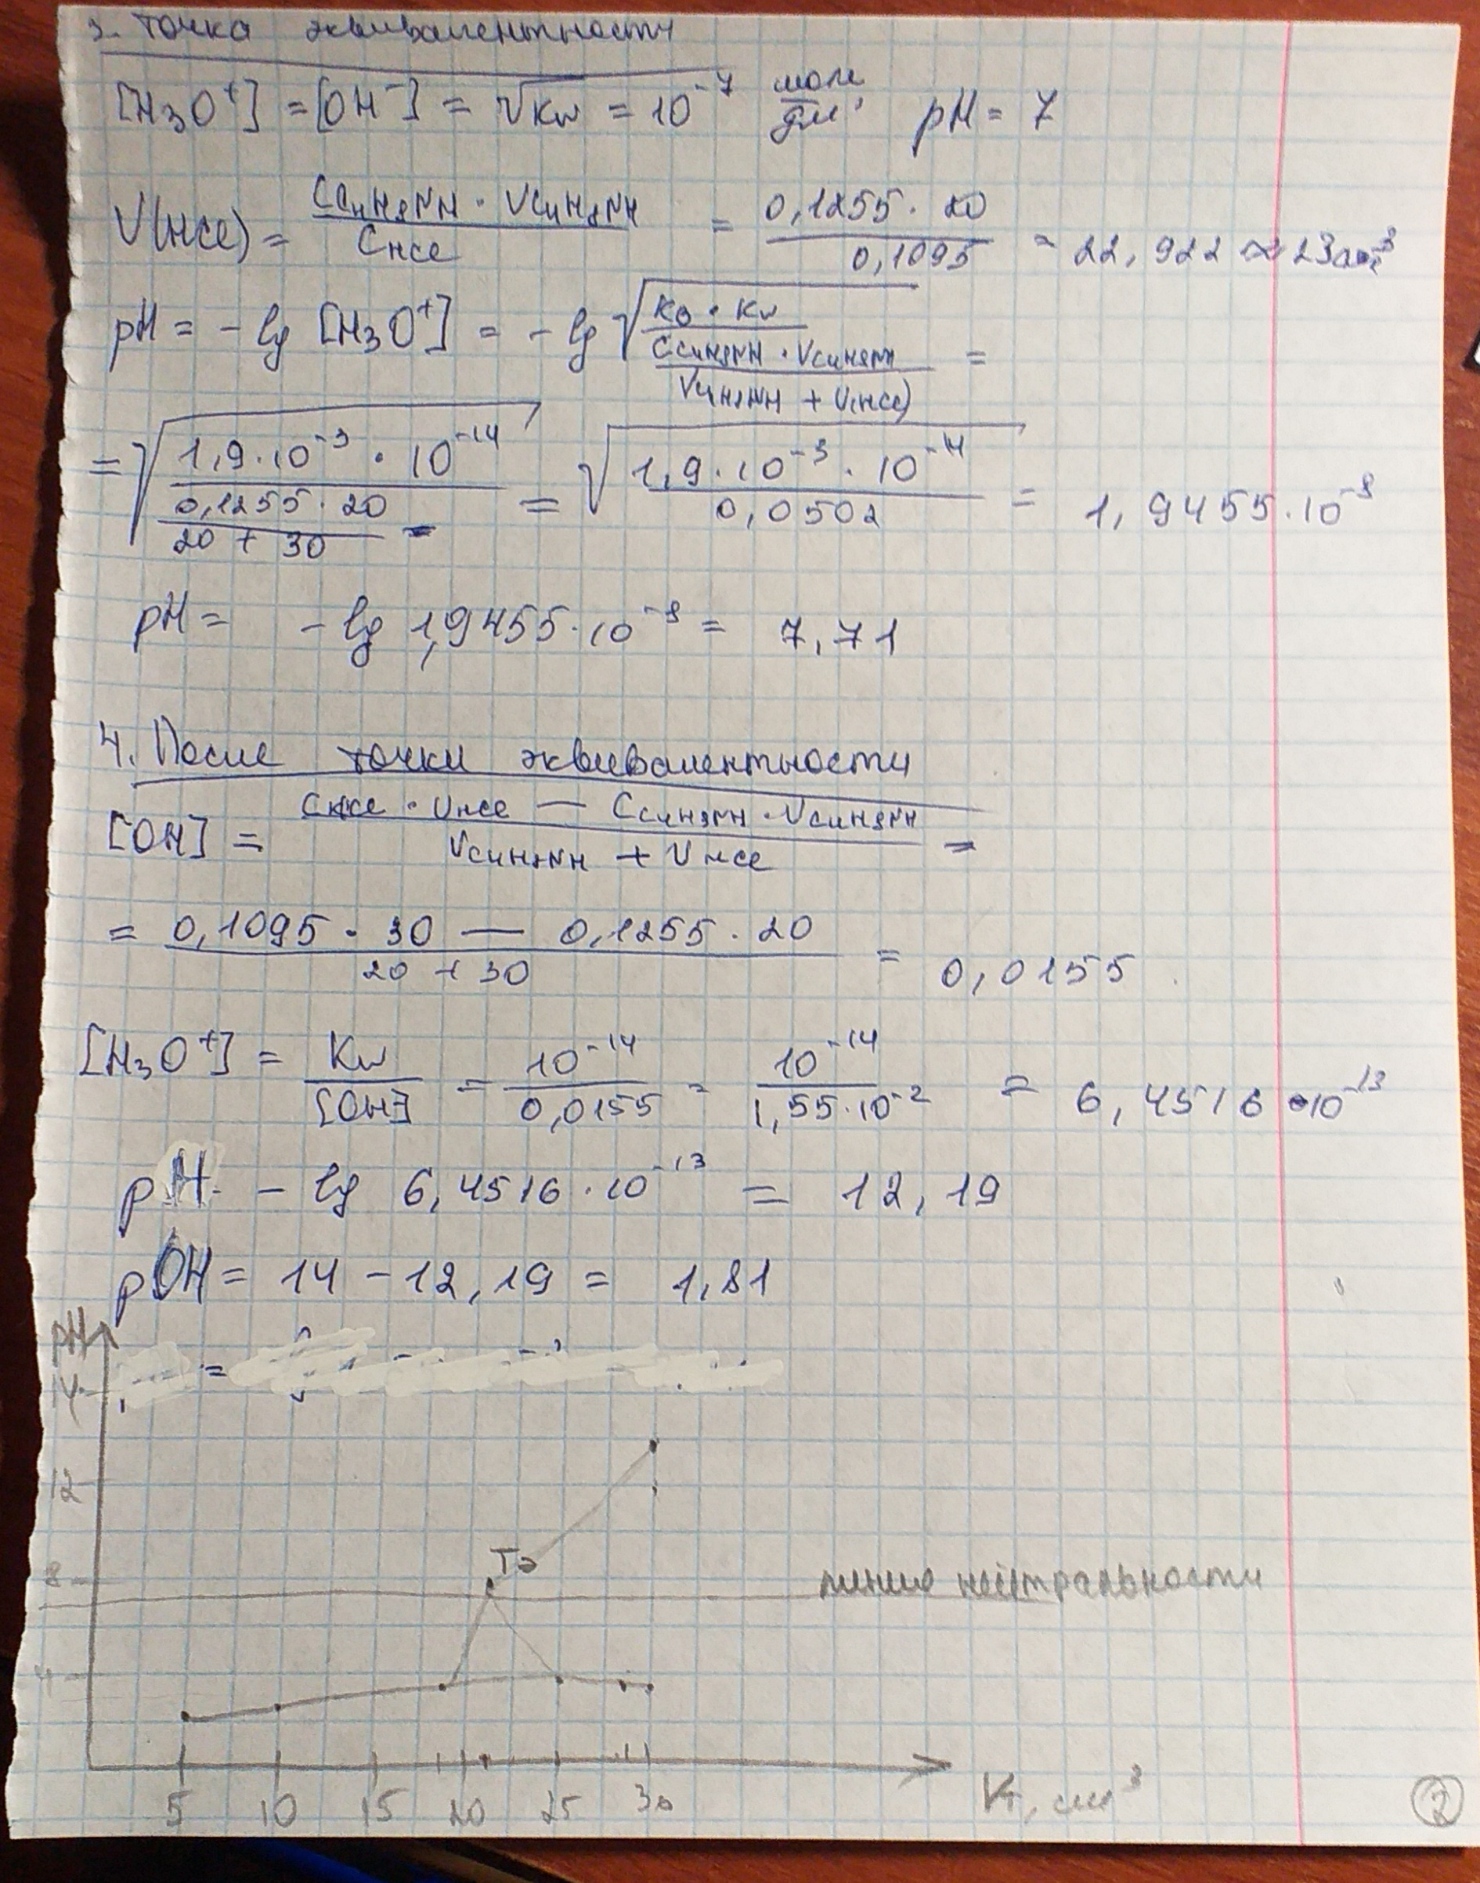 3. Точка эквивалентности
[H₃O⁺] = [OH⁻] = √Kw = 10⁻⁷ моль/дм³ pH = 7
V(HCl) = (C C₄H₈NH · V C₄H₈NH) / C HCl = (0,1255 · 20) / 0,1095 = 22,922 ≈ 23 см³
pH = - lg [H₃O⁺] = - lg √((Kв · Kw) / ((C C₄H₈NH · V C₄H₈NH) / (V C₄H₈NH + V(HCl)))) =
= √((1,9·10⁻³ · 10⁻¹⁴) / ((0,1255 · 20) / (20 + 30))) = √((1,9·10⁻³ · 10⁻¹⁴) / 0,0502) = 1,9455·10⁻⁸
pH = - lg 1,9455·10⁻⁸ = 7,71
4. После точки эквивалентности
[OH] = (C HCl · V HCl — C C₄H₈NH · V C₄H₈NH) / (V C₄H₈NH + V HCl) =
= (0,1095 · 30 — 0,1255 · 20) / (20 + 30) = 0,0155
[H₃O⁺] = Kw / [OH] = 10⁻¹⁴ / 0,0155 = 10⁻¹⁴ / 1,55·10⁻² = 6,4516·10⁻¹³
pH - lg 6,4516·10⁻¹³ = 12,19
pOH = 14 - 12,19 = 1,81
pH
14
12
Тэ
8
линия нейтральности
4
5 10 15 20 25 30 Vт, см³
2